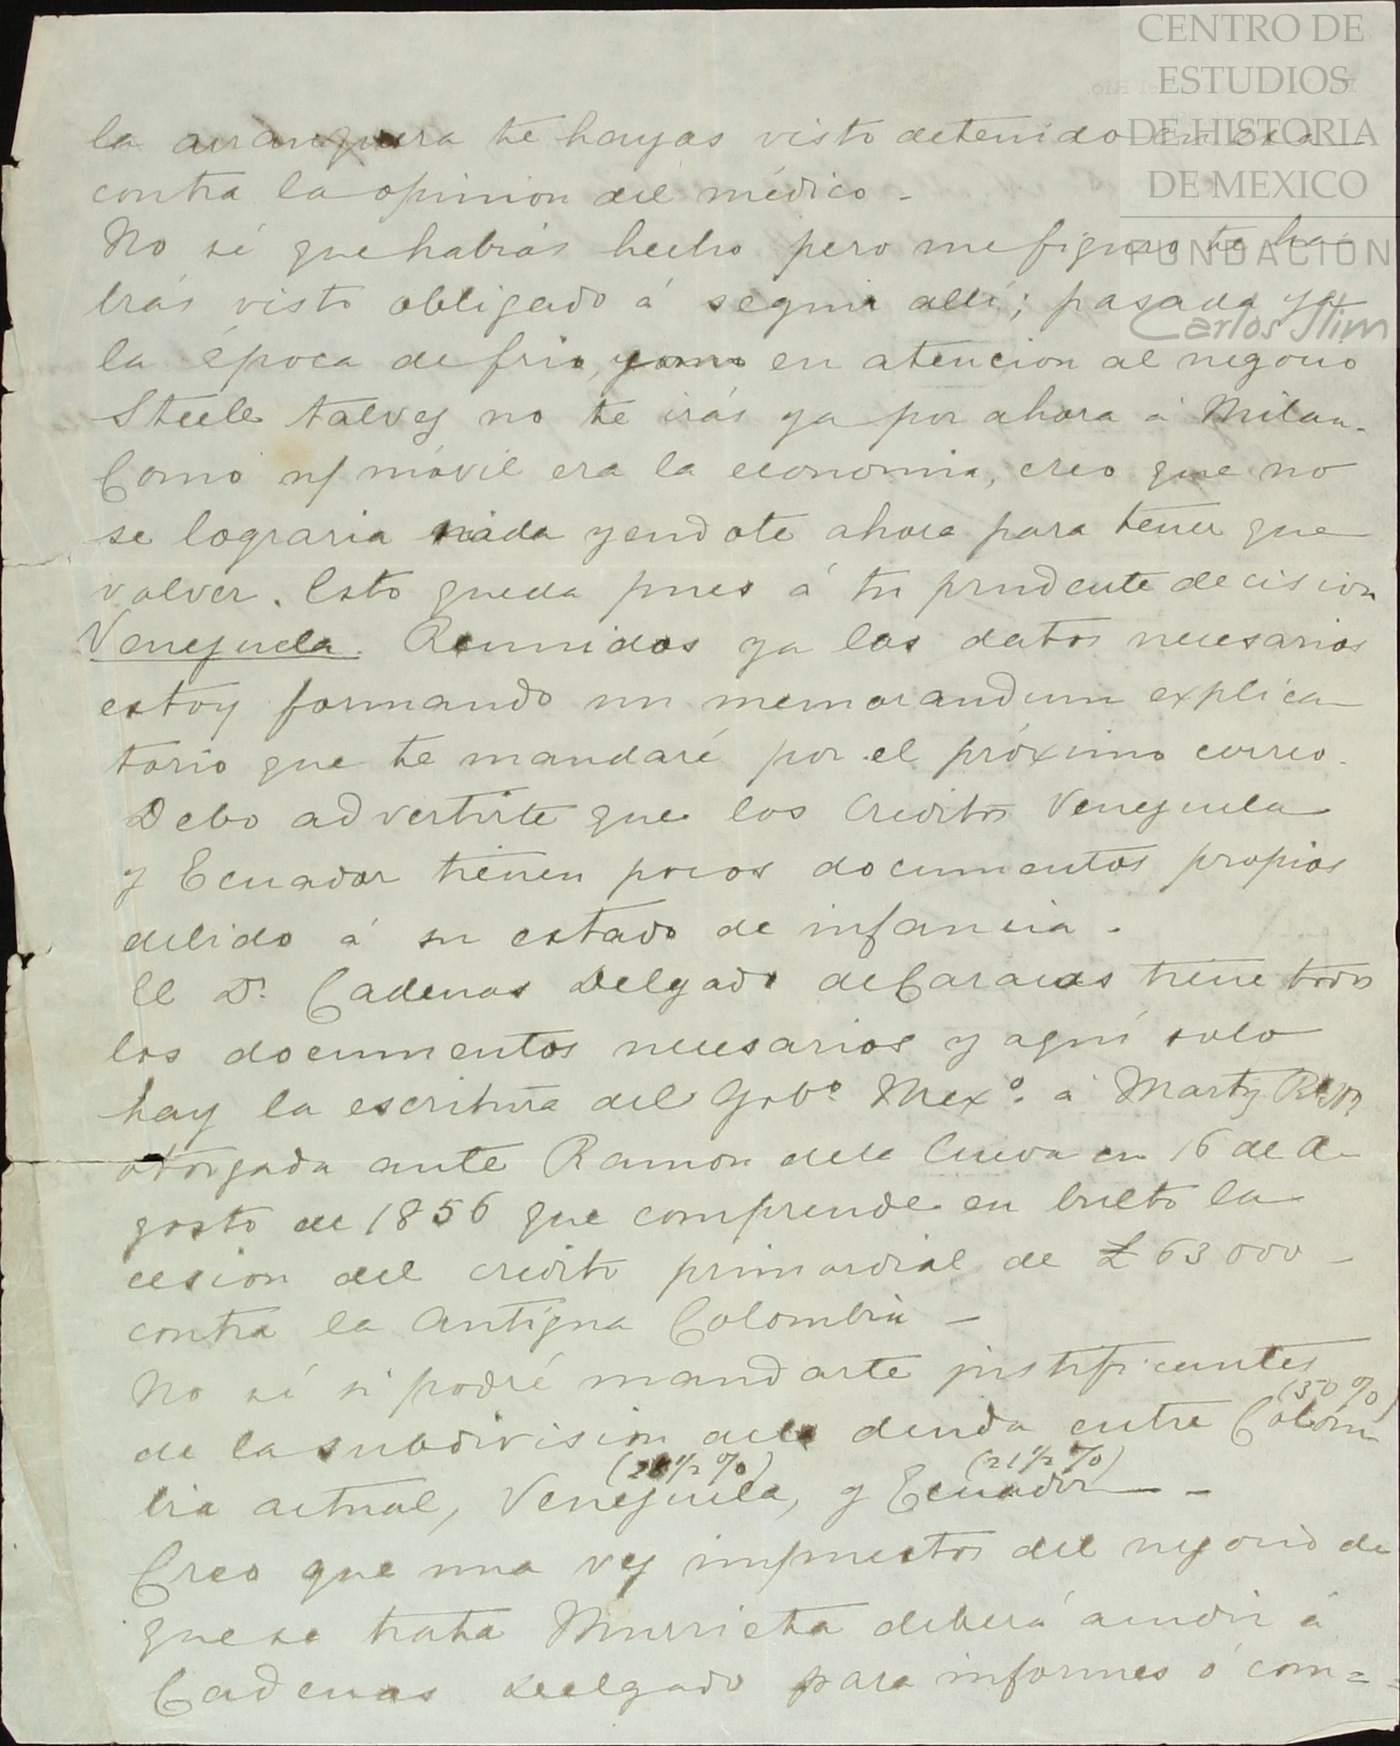 CENTRO DE
ESTUDIOS
DE HISTORIA
DE MEXICO
FUNDACIÓN
Carlos Slim
la arranquera te hayas visto detenido en esa
contra la opinion del médico -
No sé que habrás hecho pero me figuro te ha-
brás visto obligado á seguir allí; pasada ya
la época de frio, y como en atencion al negocio
Steele talvez no te irás ya por ahora á Milan.
Como n/ móvil era la economia, creo que no
se lograria nada yendote ahora para tener que
volver. Esto queda pues á tu prudente decision
Venezuela. Reunidos ya los datos necesarios
estoy formando un memorandum explica-
torio que te mandaré por el próximo correo.
Debo advertirte que los Creditos Venezuela
y Ecuador tienen pocos documentos propios
debido á su estado de infancia.
El Dr. Cadenas Delgado de Caracas tiene todos
los documentos necesarios y aquí solo
hay la escritura del Gobo. Mexo. á Martz
otorgada ante Ramon de la Cueva en 16 de A-
gosto de 1856 que comprende en bulto la
cesion del credito primordial de £ 63000 -
contra la Antigua Colombia -
No sé si podré mandarte justificantes
de la subdivision de la deuda entre Colom- (50 %)
bia actual, Venezuela, (28½ %) y Ecuador (21½ %) - -
Creo que una vez impuestos del negocio de
que se trata Murrieta deberá acudir á
Cadenas Delgado para informes ó com=